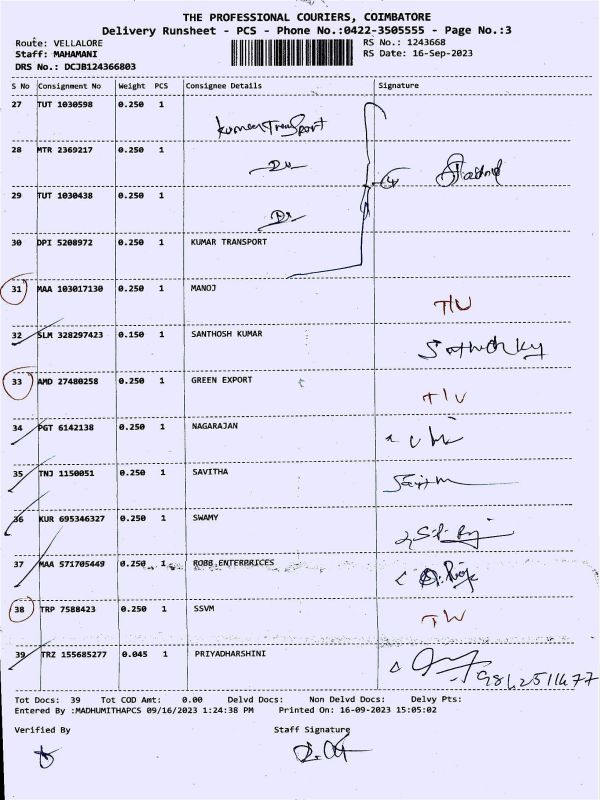 THE PROFESSIONAL COURIERS, COIMBATORE
Delivery Runsheet - PCS - Phone No.:0422-3505555 - Page No.:3
Route: VELLALORE RS No.: 1243668
Staff: MAHAMANI RS Date: 16-Sep-2023
DRS No.: DCJB124366803
S No Consignment No Weight PCS Consignee Details Signature
27 TUT 1030598 0.250 1
Kumar Transport
28 MTR 2369217 0.250 1
29 TUT 1030438 0.250 1
30 DPI 5208972 0.250 1 KUMAR TRANSPORT
31 MAA 103017130 0.250 1 MANOJ
32 SLM 328297423 0.150 1 SANTHOSH KUMAR
33 AMD 27480258 0.250 1 GREEN EXPORT
34 PGT 6142138 0.250 1 NAGARAJAN
35 TNJ 1150051 0.250 1 SAVITHA
36 KUR 695346327 0.250 1 SWAMY
37 MAA 571705449 0.250 1 ROBB ENTERPRICES
38 TRP 7588423 0.250 1 SSVM
39 TRZ 155685277 0.045 1 PRIYADHARSHINI
Tot Docs: 39 Tot COD Amt: 0.00 Delvd Docs: Non Delvd Docs: Delvy Pts:
Entered By :MADHUMITHAPCS 09/16/2023 1:24:38 PM Printed On: 16-09-2023 15:05:02
Verified By Staff Signature